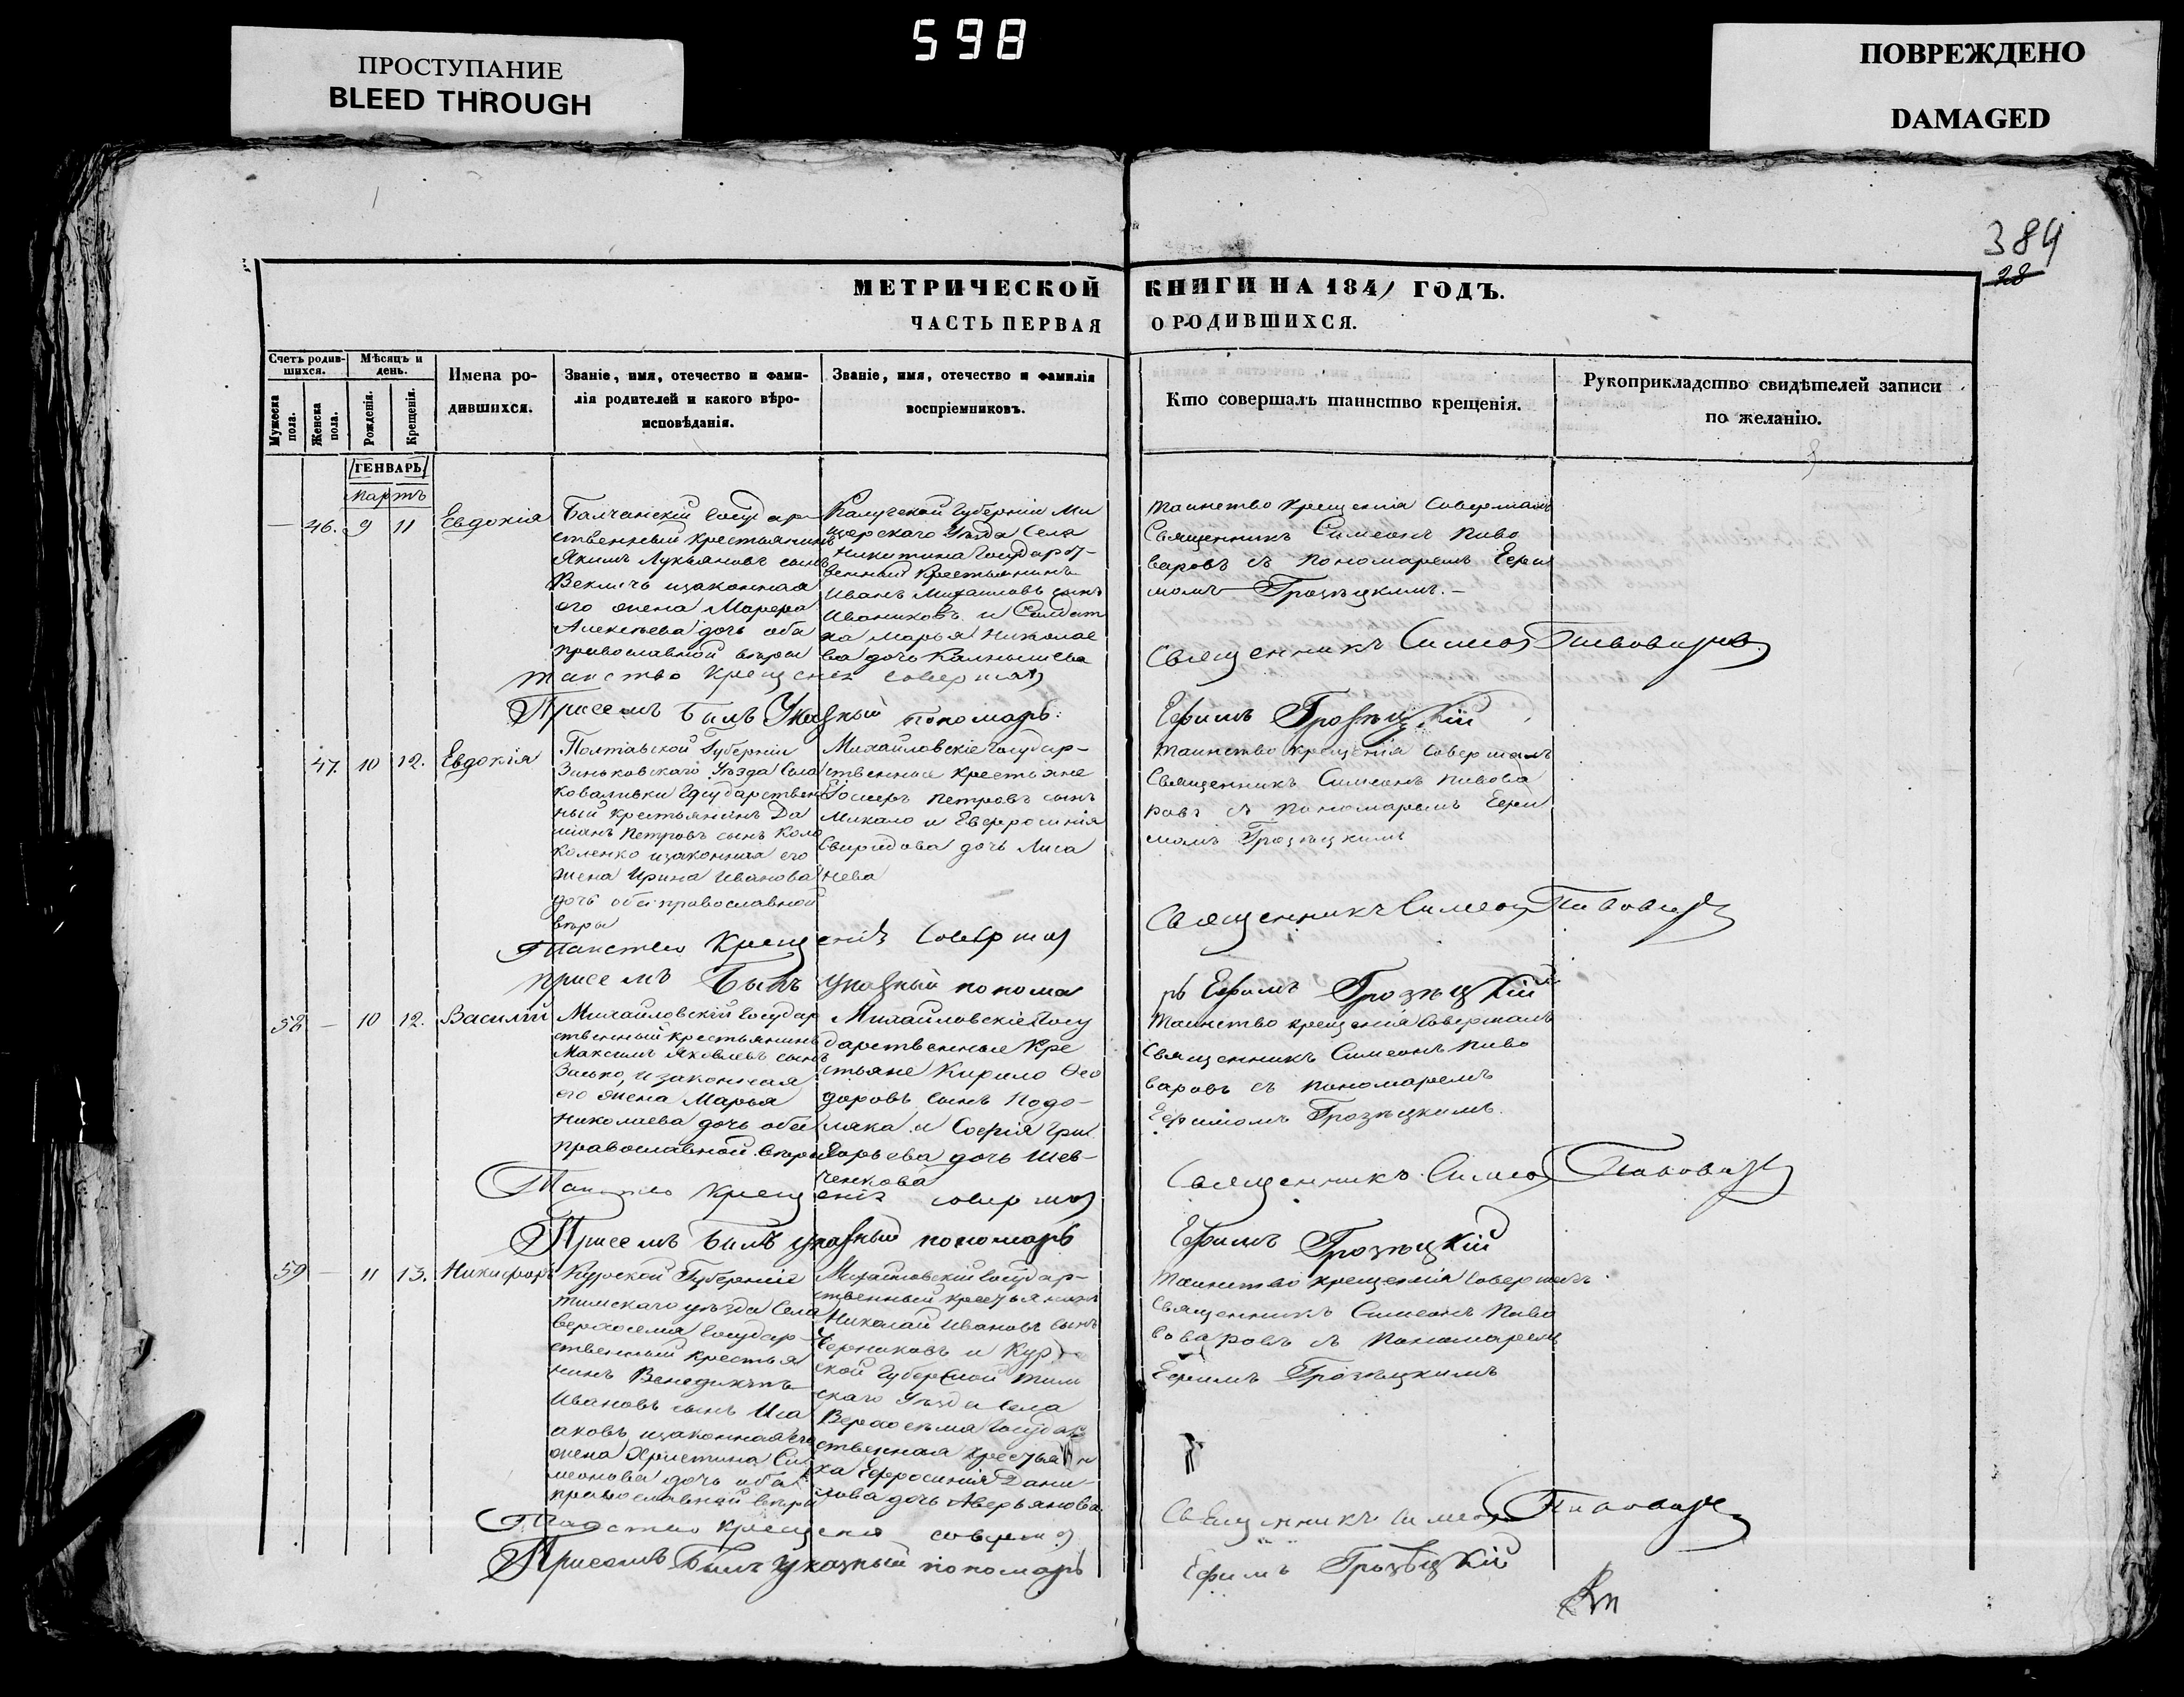 598
ПРОСТУПАНИЕ
BLEED THROUGH
ПОВРЕЖДЕНО
DAMAGED
384
28
МЕТРИЧЕСКОЙ КНИГИ НА 1841 ГОДЪ.
ЧАСТЬ ПЕРВАЯ О РОДИВШИХСЯ.
Счетъ родившихся.
Мужеска пола.
Женска пола.
Мѣсяцъ и день.
Рожденія.
Крещенія.
Имена родившихся.
Званіе, имя, отечество и фамилія родителей и какого вѣроисповѣданія.
Званіе, имя, отечество и фамилія воспріемниковъ.
Кто совершалъ таинство крещенія.
Рукоприкладство свидѣтелей записи по желанію.
ГЕНВАРЬ
мартъ
— 46. 9 11 Евдокія
Балчанскій государ
ственный крестьянинъ
Якимъ Лукьяновъ сынъ
Векличь изаконная
его жена Марфа
Алексѣева дочь оба
православной вѣры
Калужской Губерніи Ми
щовскаго Уѣзда Села
Никитина Государст
венный Крестьянинъ
Иванъ Михаиловъ сынъ
Иваниковъ и Салдат
ка Марья Николае
ва дочь Калнышева
таинство крещенія совершалъ
Священникъ Симеонъ Пиво
варовъ съ пономаремъ Ефи
момъ Грозѣцкимъ.
таиство Крещенія совершал
Священникъ Симео Пивоваровъ
Присемъ былъ Указный пономарь:
Ефимъ Грозѣцкій
47. 10 12. Евдокія
Полтавской Губерніи
Зиньковскаго Уѣзда Села
Коваливки Государствен
ный крестьянинъ Да
міанъ Петровъ сынъ Коло
коленко изаконная его
жена Ирина Иванова
дочь обеи православной
вѣры
Михайловскіе государ-
ственные крестьяне
Іосифъ Петровъ сынъ
Михало и Евфросинія
Свиридова дочь Лиса
нева
таинство крещенія совершалъ
Священникъ Симеонъ Пивова
ровъ съ пономаремъ Ефи
момъ Грозѣцкимъ
Таиство Крещеніѣ совершал
Священникъ Симеон Пивовар
присемъ былъ указный понома
рь Ефимъ Грозѣцкій
58 — 10 12. Василій
Михайловскій государ
ственный крестьянинъ
Максимъ Яковлевъ сынъ
Засько, изаконная
его жена Марья
Николаева дочь обеи
православной вѣры
Михайловскіе Госу
дарственные Кре
стьяне Кирило Ѳео
доровъ сынъ Подо-
ляка и Софія Гри
горьева дочь Шев-
ченкова
таинство крещенія совершалъ
Священникъ Симеонъ Пиво
варовъ съ пономаремъ
Ефимомъ Грозѣцкимъ.
Таиство Крещеніе совершал
Священникъ Симео Пивовар
Присемъ былъ указный пономарь
Ефимъ Грозѣцкій
59 — 11 13. Никифоръ
Курской Губерніи
тимскаго уѣзда Села
верхосемя государ-
ственный крестья
нинъ Венедиктъ
Ивановъ сынъ Иса
аковъ изаконная его
жена Христина Си
меонова дочь оба
православной вѣры
Михайловскій государ-
ственный крестьянинъ
Николай Ивановъ сынъ
Черниковъ и Кур
ской Губерной тим
скаго Уѣзда села
Верхосемя государ
ственная крестьян
ка Ефросинія Дани
лова дочь Аверьянова
таинство крещенія совершалъ
Священникъ Симеонъ Пиво
варовъ съ пономаремъ
Ефимъ Грозѣцкимъ
Таиство крещеніе совершал
Священникъ Симеон Пивовар
Присемъ былъ указный пономарь
Ефимъ Грозѣцкій